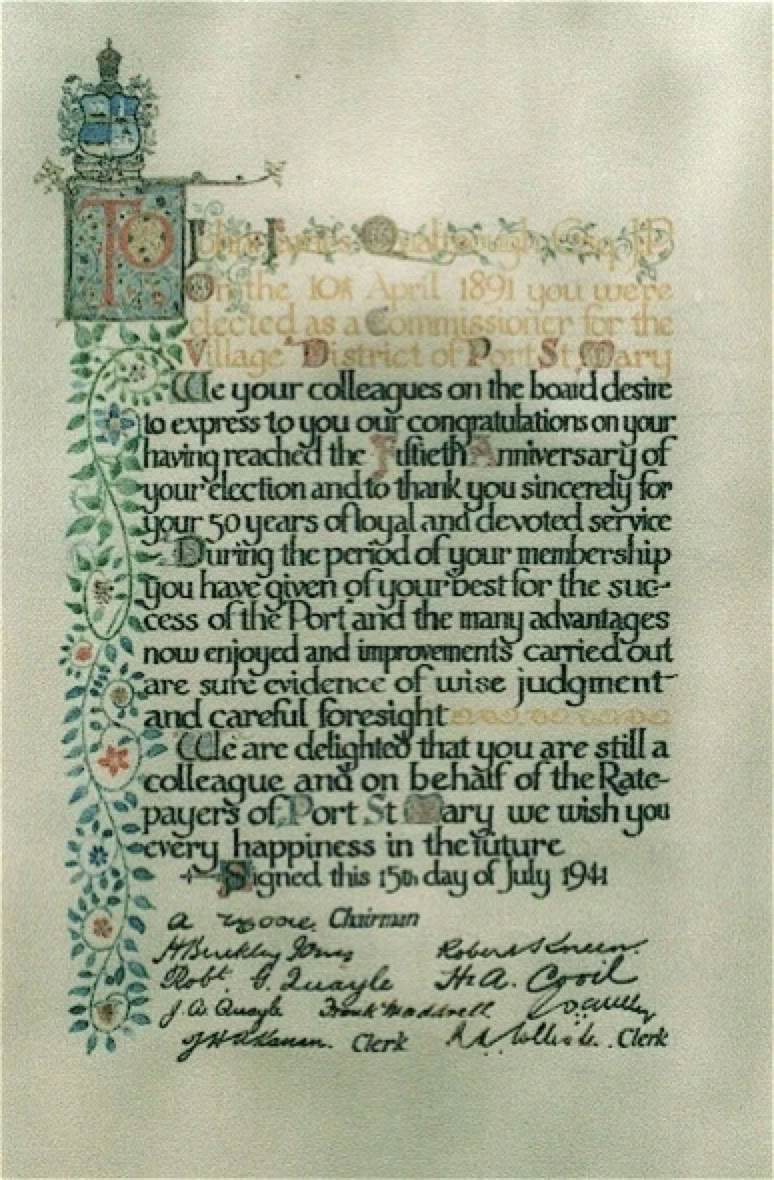 To John James Qualtrough Esq. J.P.
On the 10th April 1891 you were
elected as a Commissioner for the
Village District of Port St Mary
We your colleagues on the board desire
to express to you our congratulations on your
having reached the Fiftieth Anniversary of
your election and to thank you sincerely for
your 50 years of loyal and devoted service
During the period of your membership
you have given of your best for the suc-
cess of the Port and the many advantages
now enjoyed and improvements carried out
are sure evidence of wise judgment
and careful foresight
We are delighted that you are still a
colleague and on behalf of the Rate-
payers of Port St Mary we wish you
every happiness in the future
Signed this 15th day of July 1941
A Moore. Chairman
Robert S Kneen.
Robt. G. Quayle H. A. Cooil
J. A. Quayle Frank Maddrell
Clerk Clerk